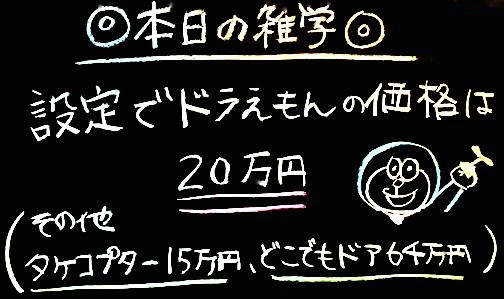 ◎本日の雑学◎
設定でドラえもんの価格は
20万円
(その他
タケコプター15万円、どこでもドア64万円)